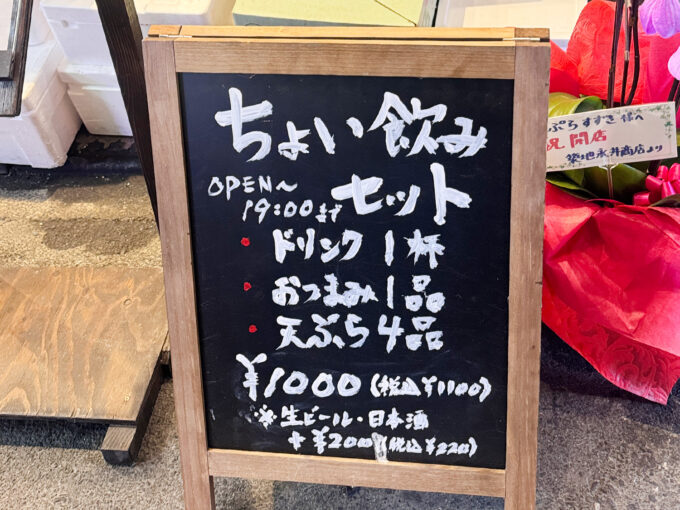 ちょい飲み
OPEN～
19:00まで
セット
・ドリンク 1杯
・おつまみ1品
・天ぷら4品
¥1000(税込¥1100)
※生ビール・日本酒
+¥200(税込¥220)
ぷら すずき 様へ
祝 開店
築地永井商店より